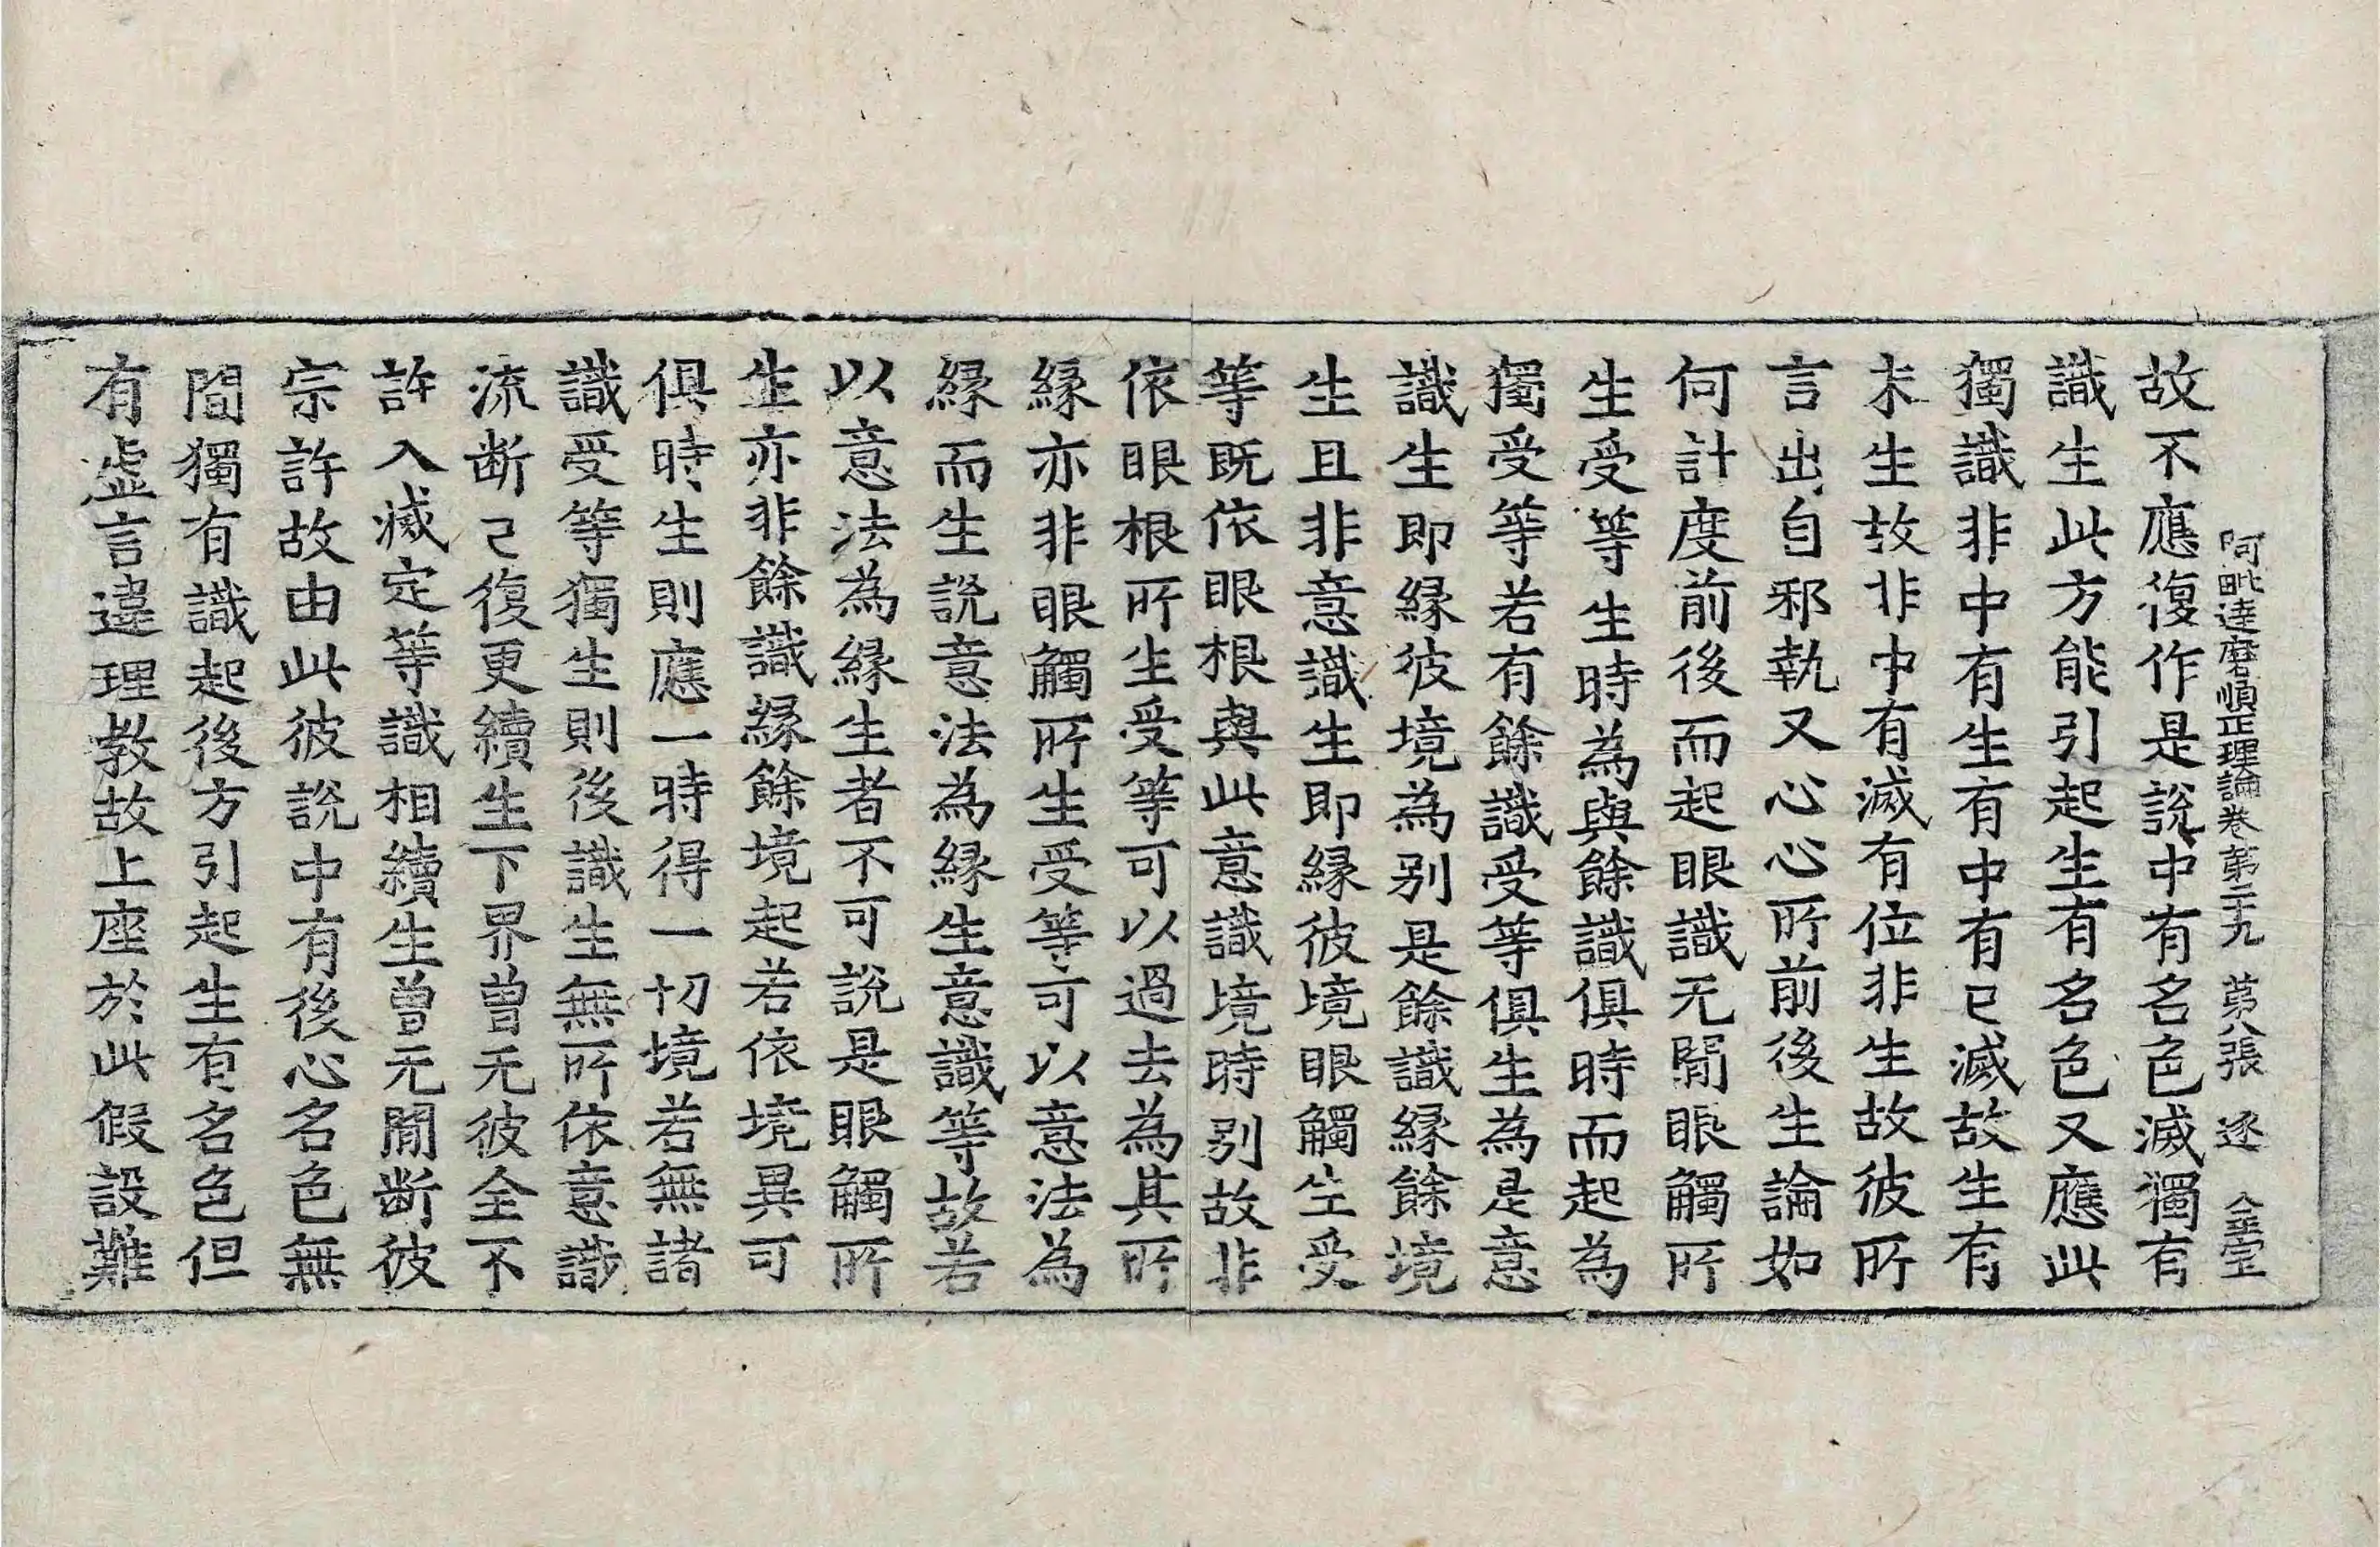 阿毗達磨順正理論卷第二十九　第八張　逐　金宝
故不應復作是說中有名色滅獨有
識生此方能引起生有名色又應此
獨識非中有生有中有已滅故生有
未生故非中有滅有位非生故彼所
言出自邪執又心心所前後生論如
何計度前後而起眼識无閒眼觸所
生受等生時為與餘識俱時而起為
獨受等若有餘識受等俱生為是意
識生即緣彼境為別是餘識緣餘境
生且非意識生即緣彼境眼觸生受
等既依眼根與此意識境時別故非
依眼根所生受等可以過去為其所
緣亦非眼觸所生受等可以意法為
緣而生說意法為緣生意識等故若
以意法為緣生者不可說是眼觸所
生亦非餘識緣餘境起若依境異可
俱時生則應一時得一切境若無諸
識受等獨生則後識生無所依意識
流断已復更續生下界曾无彼全不
許入滅定等識相續生曾无閒断彼
宗許故由此彼說中有後心名色無
閒獨有識起後方引起生有名色但
有虛言違理教故上座於此假設難